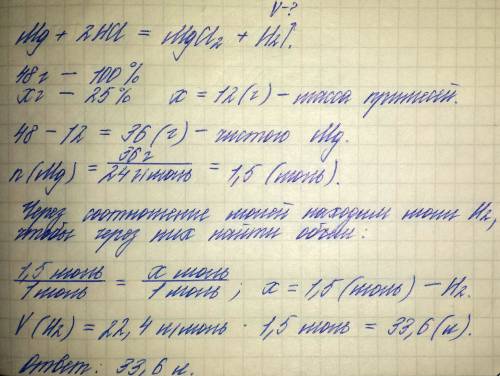 V-?
Mg + 2HCl = MgCl₂ + H₂↑.
48 г – 100 %
x г – 25 %     x = 12 (г) – масса примесей.
48 – 12 = 36 (г) – чистого Mg.
n(Mg) = 36 г / 24 г/моль = 1,5 (моль).
Через соотношение молей находим моли H₂,
чтобы через них найти объём:
1,5 моль / 1 моль = x моль / 1 моль ; x = 1,5 (моль) – H₂.
V(H₂) = 22,4 л/моль · 1,5 моль = 33,6 (л).
Ответ: 33,6 л.